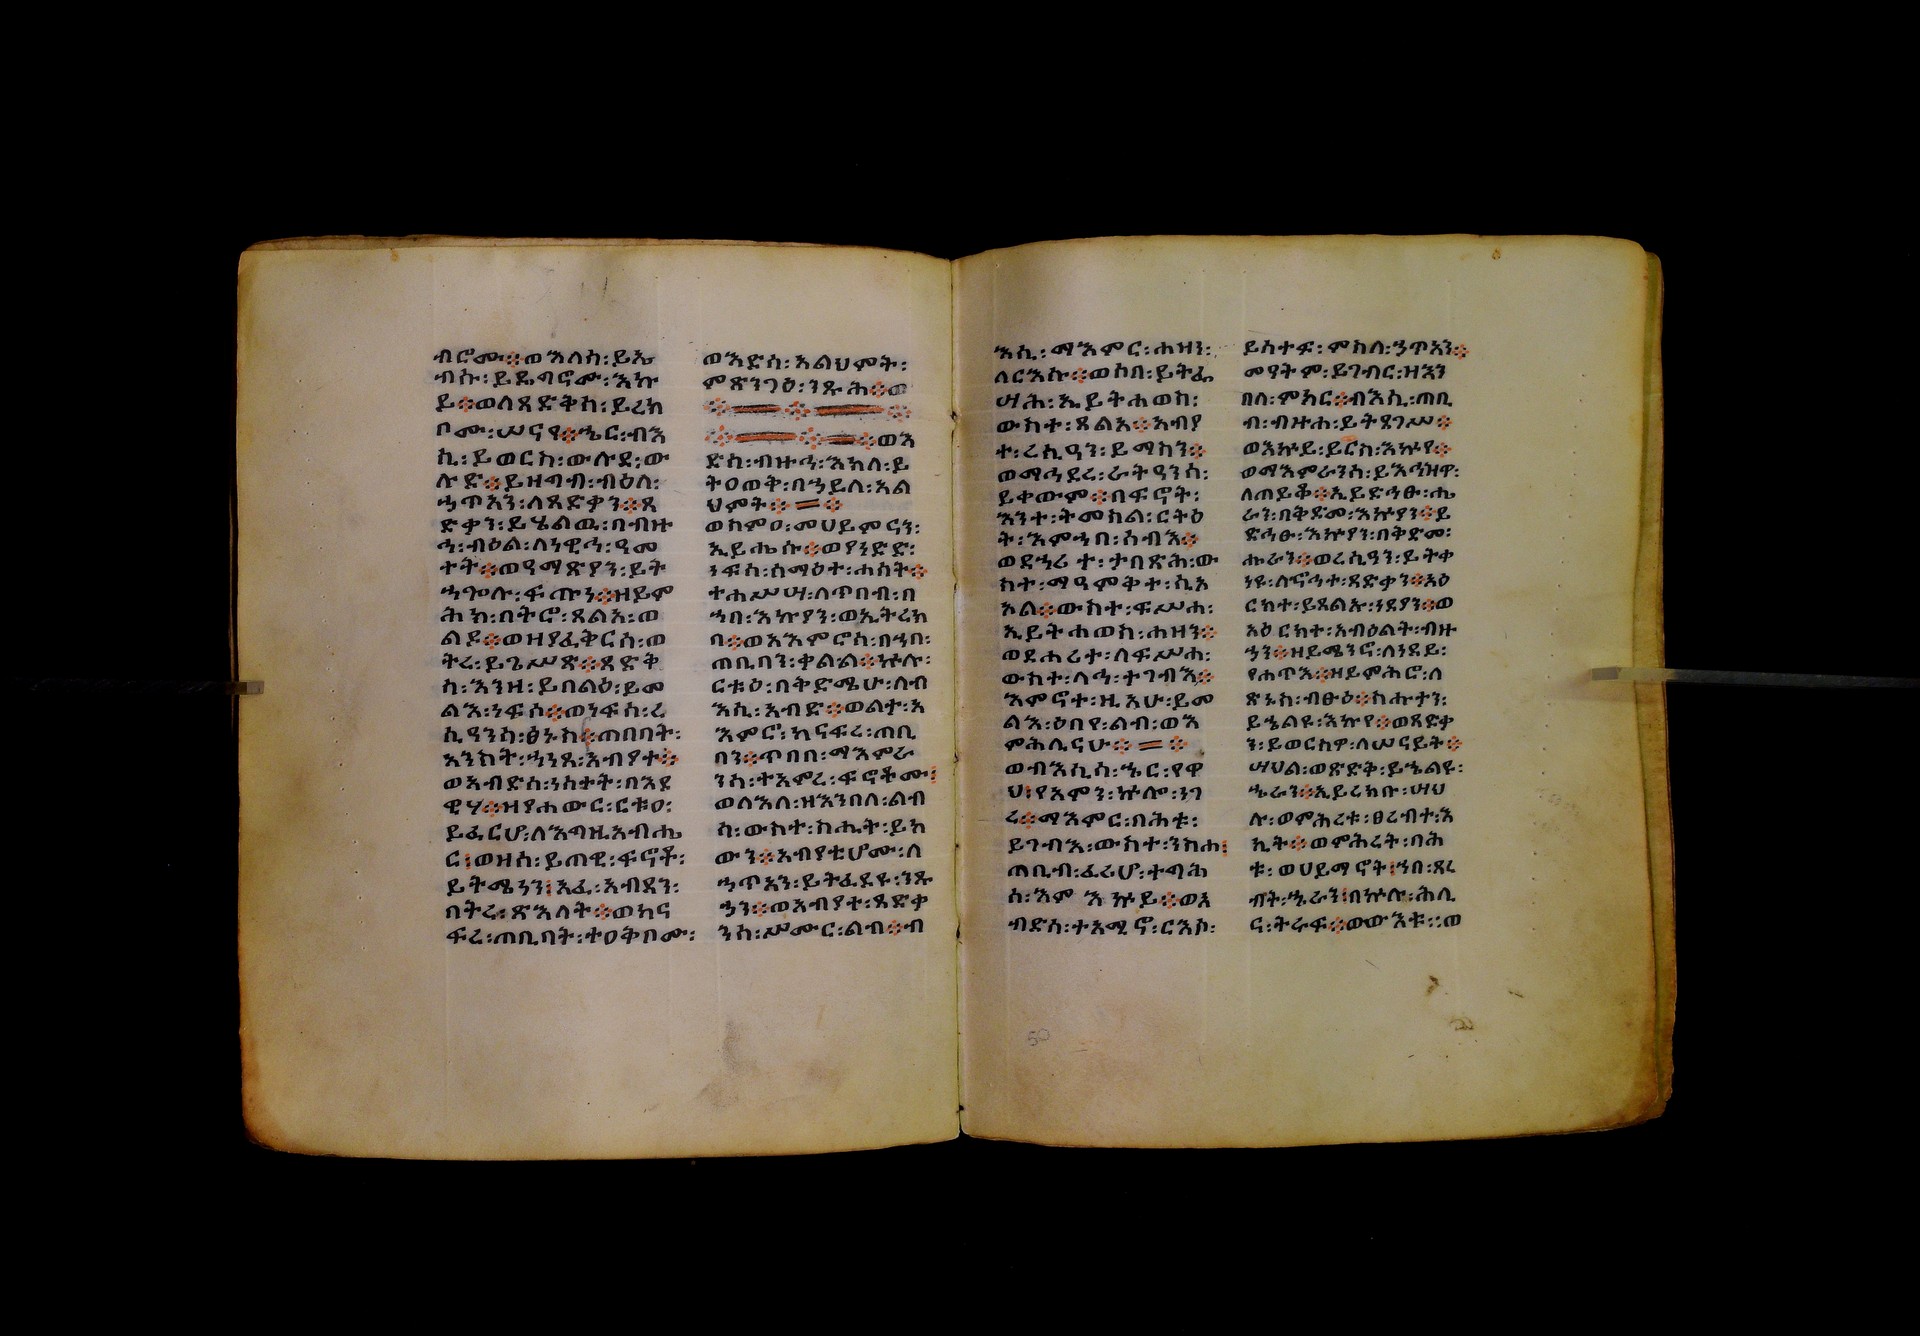 ብሮሙ፨ወእለሰ፡ይኤ
ብሱ፡ይዴግኖሙ፡እኩ
ይ፨ወለጻድቅሰ፡ይረክ
ቦሙ፡ሠናየ፨ኄር፡ብእ
ሲ፡ይወርስ፡ውሉደ፡ው
ሉድ፨ይዘግብ፡ብዕለ፡
ኃጥአን፡ለጻድቃን፨ጻ
ድቃን፡ይሄልዉ፡በብዙ
ኃ፡ብዕል፡ለነዊኃ፡ዓመ
ታት፨ወዓማጽያን፡ይት
ኃጐሉ፡ፍጡነ፨ዘይም
ሕክ፡በትሮ፡ጸልአ፡ወ
ልዶ፨ወዘያፈቅርሰ፡ወ
ትረ፡ይጌሥጽ፨ጻድቅ
ሰ፡እንዘ፡ይበልዕ፡ይመ
ልእ፡ነፍሶ፨ወነፍሰ፡ረ
ሲዓንሰ፡ፅኑስ፨ጠበባት፡
አንስት፡ኃነጻ፡አብያተ፨
ወአብድሰ፡ነስተት፡በእደ
ዊሃ፨ዘየሐውር፡ርቱዐ፡
ይፈርሆ፡ለእግዚአብሔ
ር፡ወዘሰ፡ይጠዊ፡ፍኖቶ፡
ይትሜነን፡አፈ፡አብደን፡
በትረ፡ጽእለት፨ወከና
ፍረ፡ጠቢባት፡ተዐቅቦሙ፡
ወእድሰ፡አልህምት፡
ምጽንገዕ፡ንጹሕ፨ወ
፨፨፨
፨፨፨ወእ
ድሰ፡ብዙኃ፡እክለ፡ይ
ትዐወቅ፡በኃይለ፡አል
ህምት፨=፨
ወሰምዐ፡መሀይምናን፡
ኢይሔሱ፨ወያነድድ፡
ነፍሰ፡ስማዕተ፡ሐሰት፨
ተሐሥሣ፡ለጥበብ፡በ
ኀበ፡እኩያን፡ወኢትረክ
ባ፨ወአእምሮሰ፡በኀበ፡
ጠቢባን፡ቀልል፨ኵሉ፡
ርቱዕ፡በቅድሜሁ፡ለብ
እሲ፡አብድ፨ወልታ፡አ
እምሮ፡ከናፍረ፡ጠቢ
ባን፨ጥበበ፡ማእምራ
ንሰ፡ተአምረ፡ፍኖቶሙ፡
ወለእለ፡ዘእንበለ፡ልብ
ሰ፡ውስተ፡ስሒት፡ይከ
ውን፨አብያቲሆሙ፡ለ
ኃጥአን፡ይትፈደዩ፡ንጹ
ኃን፨ወአብያተ፡ጻድቃ
ንሰ፡ሥሙር፡ልብ፨ብ
እሲ፡ማእምር፡ሐዝን፡
ለርእሱ፨ወሰበ፡ይትፌ
ሣሕ፡ኢይትሐወስ፡
ውስተ፡ጸልአ፨አብያ
ተ፡ረሲዓን፡ይማስን፨
ወማኃደረ፡ራትዓንሰ፡
ይቀውም፨በፍኖት፡
እንተ፡ትመስል፡ርትዕ
ት፡እምኀበ፡ሰብእ፨
ወደኃሪታ፡ታበጽሕ፡ው
ስተ፡ማዓምቅተ፡ሲኦ
አል፨ውስተ፡ፍሥሐ፡
ኢይትሐወስ፡ሐዘን፨
ወደሐሪተ፡ለፍሥሐ፡
ውስተ፡ላኃ፡ተገብአ፨
እምኖተ፡ዚአሁ፡ይመ
ልእ፡ዕበየ፡ልብ፡ወእ
ምሕሊናሁ፨=፨
ወብእሲሰ፡ኄር፡የዋ
ህ፡የአምን፡ኵሎ፡ነገ
ረ፨ማእምር፡በሕቱ፡
ይገብእ፡ውስተ፡ንስሐ፡
ጠቢብ፡ፈሪሆ፡ተግሕ
ሰ፡እም እኵይ፨ወአ
ብድሰ፡ተአሚኖ፡ርእሶ፡
ይስተፍ፡ምስለ፡ኃጥአን፨
መዓትም፡ይገብር፡ዘእን
በለ፡ምክር፨ብእሲ፡ጠቢ
ብ፡ብዙሐ፡ይትዔገሥ፨
ወእኵይ፡ይርስ፡እኵየ፨
ወማእምራንሰ፡ይእኅዝዋ፡
ለጠይቆ፨ኢይድኅፁ፡ሔ
ራን፡በቅደመ፡እኵያን፨ይ
ድኅፁ፡እኵያን፡በቅድመ፡
ሔራን፨ወረሲዓን፡ይትቀ
ነዩ፡ለኖኃተ፡ጻድቃን፨አዕ
ርክተ፡ይጸልኡ፡ነዳያን፨ወ
አዕርክተ፡አብዕልት፡ብዙ
ኃን፨ዘይሜንኖ፡ለነዳይ፡
የሐጥእ፨ዘይምሕሮ፡ለ
ጽኑስ፡ብፁዕ፨ስሑታን፡
ይኄልዩ፡እኩየ፨ወጻድቃ
ን፡ይወርስዋ፡ለሠናይት፨
ሣህል፡ወጽድቅ፡ይኄልዩ፡
ኄራን፨ኢይረክቡ፡ሣህ
ሉ፡ወምሕረቱ፡ፀረብት፡እ
ኪት፨ወምሕረት፡በሕ
ቱ፡ወሀይማኖት፡ኀበ፡ጸረ
ብት፡ኄራን፡በኵሉ፡ሕሊ
ና፡ትራፍ፨ወውእቱ፡፡ወ
50